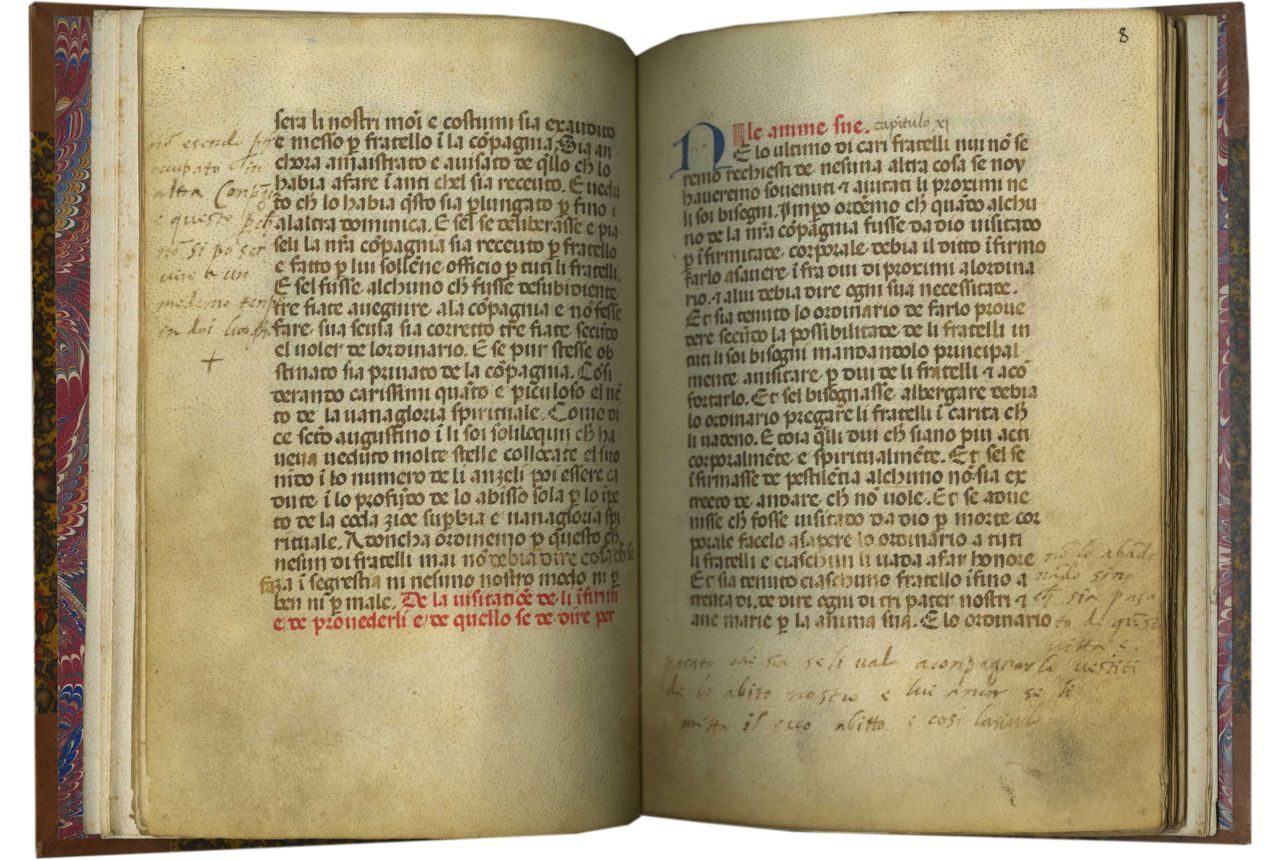 sera li nostri mōi e costumi sia exaudito
e messo ꝑ fratello ī la cōpagnia. Sia an
chora amaistrato e auisato de q̄llo ch̄ lo
habia afare ī anti chel sia receuto. E uedu
to ch̄ lo habia q̄sto sia ꝑlungato ꝑ fino ī
alaltra dominica. E sel se deliberasse e pia
seli la nr̄a cōpagnia sia receuto ꝑ fratello
e fatto ꝑ lui sollēne officio ꝑ tuti li fratelli.
E sel fusse alchuno ch̄ fusse desubidiente
tre fiate auegnire ala cōpagnia e nō fesse
fare sua scusa sia corretto tre fiate secūto
el uoler de lordinario. E se pur stesse ob
stinato sia priuato de la cōpagnia. Cōsi
derando carissimi quāto e ꝑiculoso el uē
to de la uanagloria spirituale. Como di
ce sctō augustino ī li soi soliloquii ch̄ ha
ueua ueduto molte stelle collocate el suo
nido ī lo numero de li anzeli poi essere ca
dute ī lo profūdo de lo abisso sola ꝑ lo ipe
to de la coda zioe suꝑbia e uanagloria spi
rituale. Adoncha ordinemo ꝑ questo ch̄
nesun di fratelli mai nō debia dire cosa ch̄ se
faza ī segrestia ni nesuno nostro modo ni ꝑ
ben ni ꝑ male. De la uisitatiōe de li ifirmi
e de prouederli e de quello se de dire per
nō esendo pre
ocupato in
altra Compāgia
e questo ꝑch
nō si po ser
vire a un
medemo tempo
in doi luoghi
+
8
le anime sue. capitulo xj
NE lo ultimo di cari fratelli nui nō se
remo rechiesti de nesuna altra cosa se noy
haueremo souenuti ⁊ aiutati li proximi ne
li soi bisogni. Impo ordēmo ch̄ quādo alchu
no de la nr̄a cōpagnia fusse da dio uisitato
ꝑ īfirmitade corporale debia il ditto īfirmo
farlo asauere ī fra dui di proximi alordina
rio. ⁊ alui debia dire ogni sua necessitate.
Et sia tenuto lo ordinario de farlo proue
dere secūto la possibilitade de li fratelli in
tuti li soi bisogni mandandolo principal
mente auisitare ꝑ dui de li fratelli ⁊ acō
fortarlo. Et sel bisognasse albergare debia
lo ordinario pregare li fratelli ī carita ch̄
li uadeno. E toia q̄lli dui ch̄ siano piu acti
corporalmēte e spiritualmēte. Et sel se
īfirmasse de pestilētia alchuno nō sia ex
trecto de andare ch̄ nō uole. Et se adue
nisse ch̄ fosse uisitato da dio ꝑ morte cor
porale facelo asapere lo ordinario a tuti
li fratelli e ciaschun li uada afar honore
Et sia tenuto ciaschuno fratello īfino a
trenta di. de dire ogni di tri pater nostri ⁊
aue marie ꝑ la anima sua. E lo ordinario
nō lo abādo
nādo sino
ch̄ sia pasa
to di q̄sta
uitta e.
pasato che sia se li uada acompagnarlo vestiti
de lo abito nostro e lui ancor se li
mitta il suo abitto e cosi lasarlo